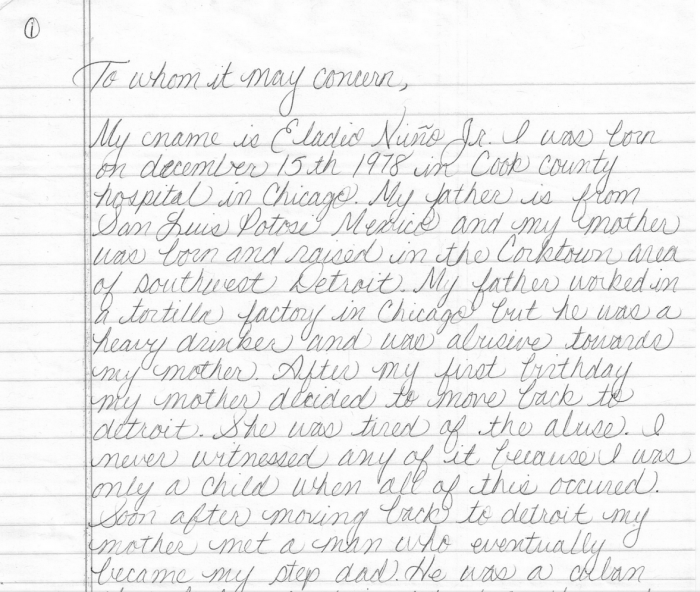 1
To whom it may concern,
My name is Eladio Nuño Jr. I was born
on december 15th 1978 in Cook county
hospital in Chicago. My father is from
San Luis Potosi Mexico and my mother
was born and raised in the Corktown area
of southwest Detroit. My father worked in
a tortilla factory in Chicago but he was a
heavy drinker and was abusive towards
my mother. After my first birthday
my mother decided to move back to
detroit. She was tired of the abuse. I
never witnessed any of it because I was
only a child when all of this occured.
Soon after moving back to detroit my
mother met a man who eventually
became my step dad. He was a cuban